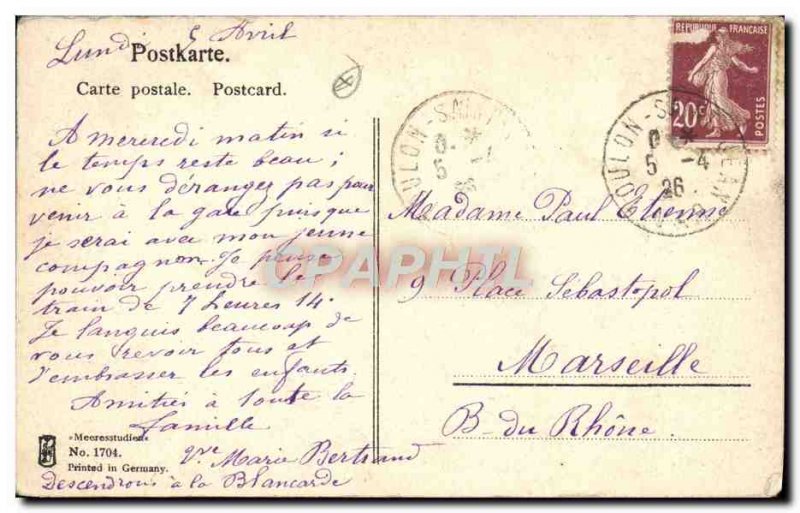 Lundi 5 Avril
Postkarte.
Carte postale. Postcard.
A mercredi matin si
le temps reste beau ;
ne vous dérangez pas pour
venir à la gare puisque
je serai avec mon jeune
compagnon. Je pense
pouvoir prendre le
train de 7 heures 14.
Je languis beaucoup de
vous revoir tous et
d'embrasser les enfants.
Amitiés à toute la
famille
Vve Marie Bertrand
Descendrons à la Blancarde
»Meeresstudien«
No. 1704.
Printed in Germany.
REPUBLIQUE FRANCAISE
20c
POSTES
TOULON-S
5 -4
26
OULON-SA
5 -4
26
Madame Paul Etienne
9 Place Sébastopol
Marseille
B. du Rhône.
CPAPHIL